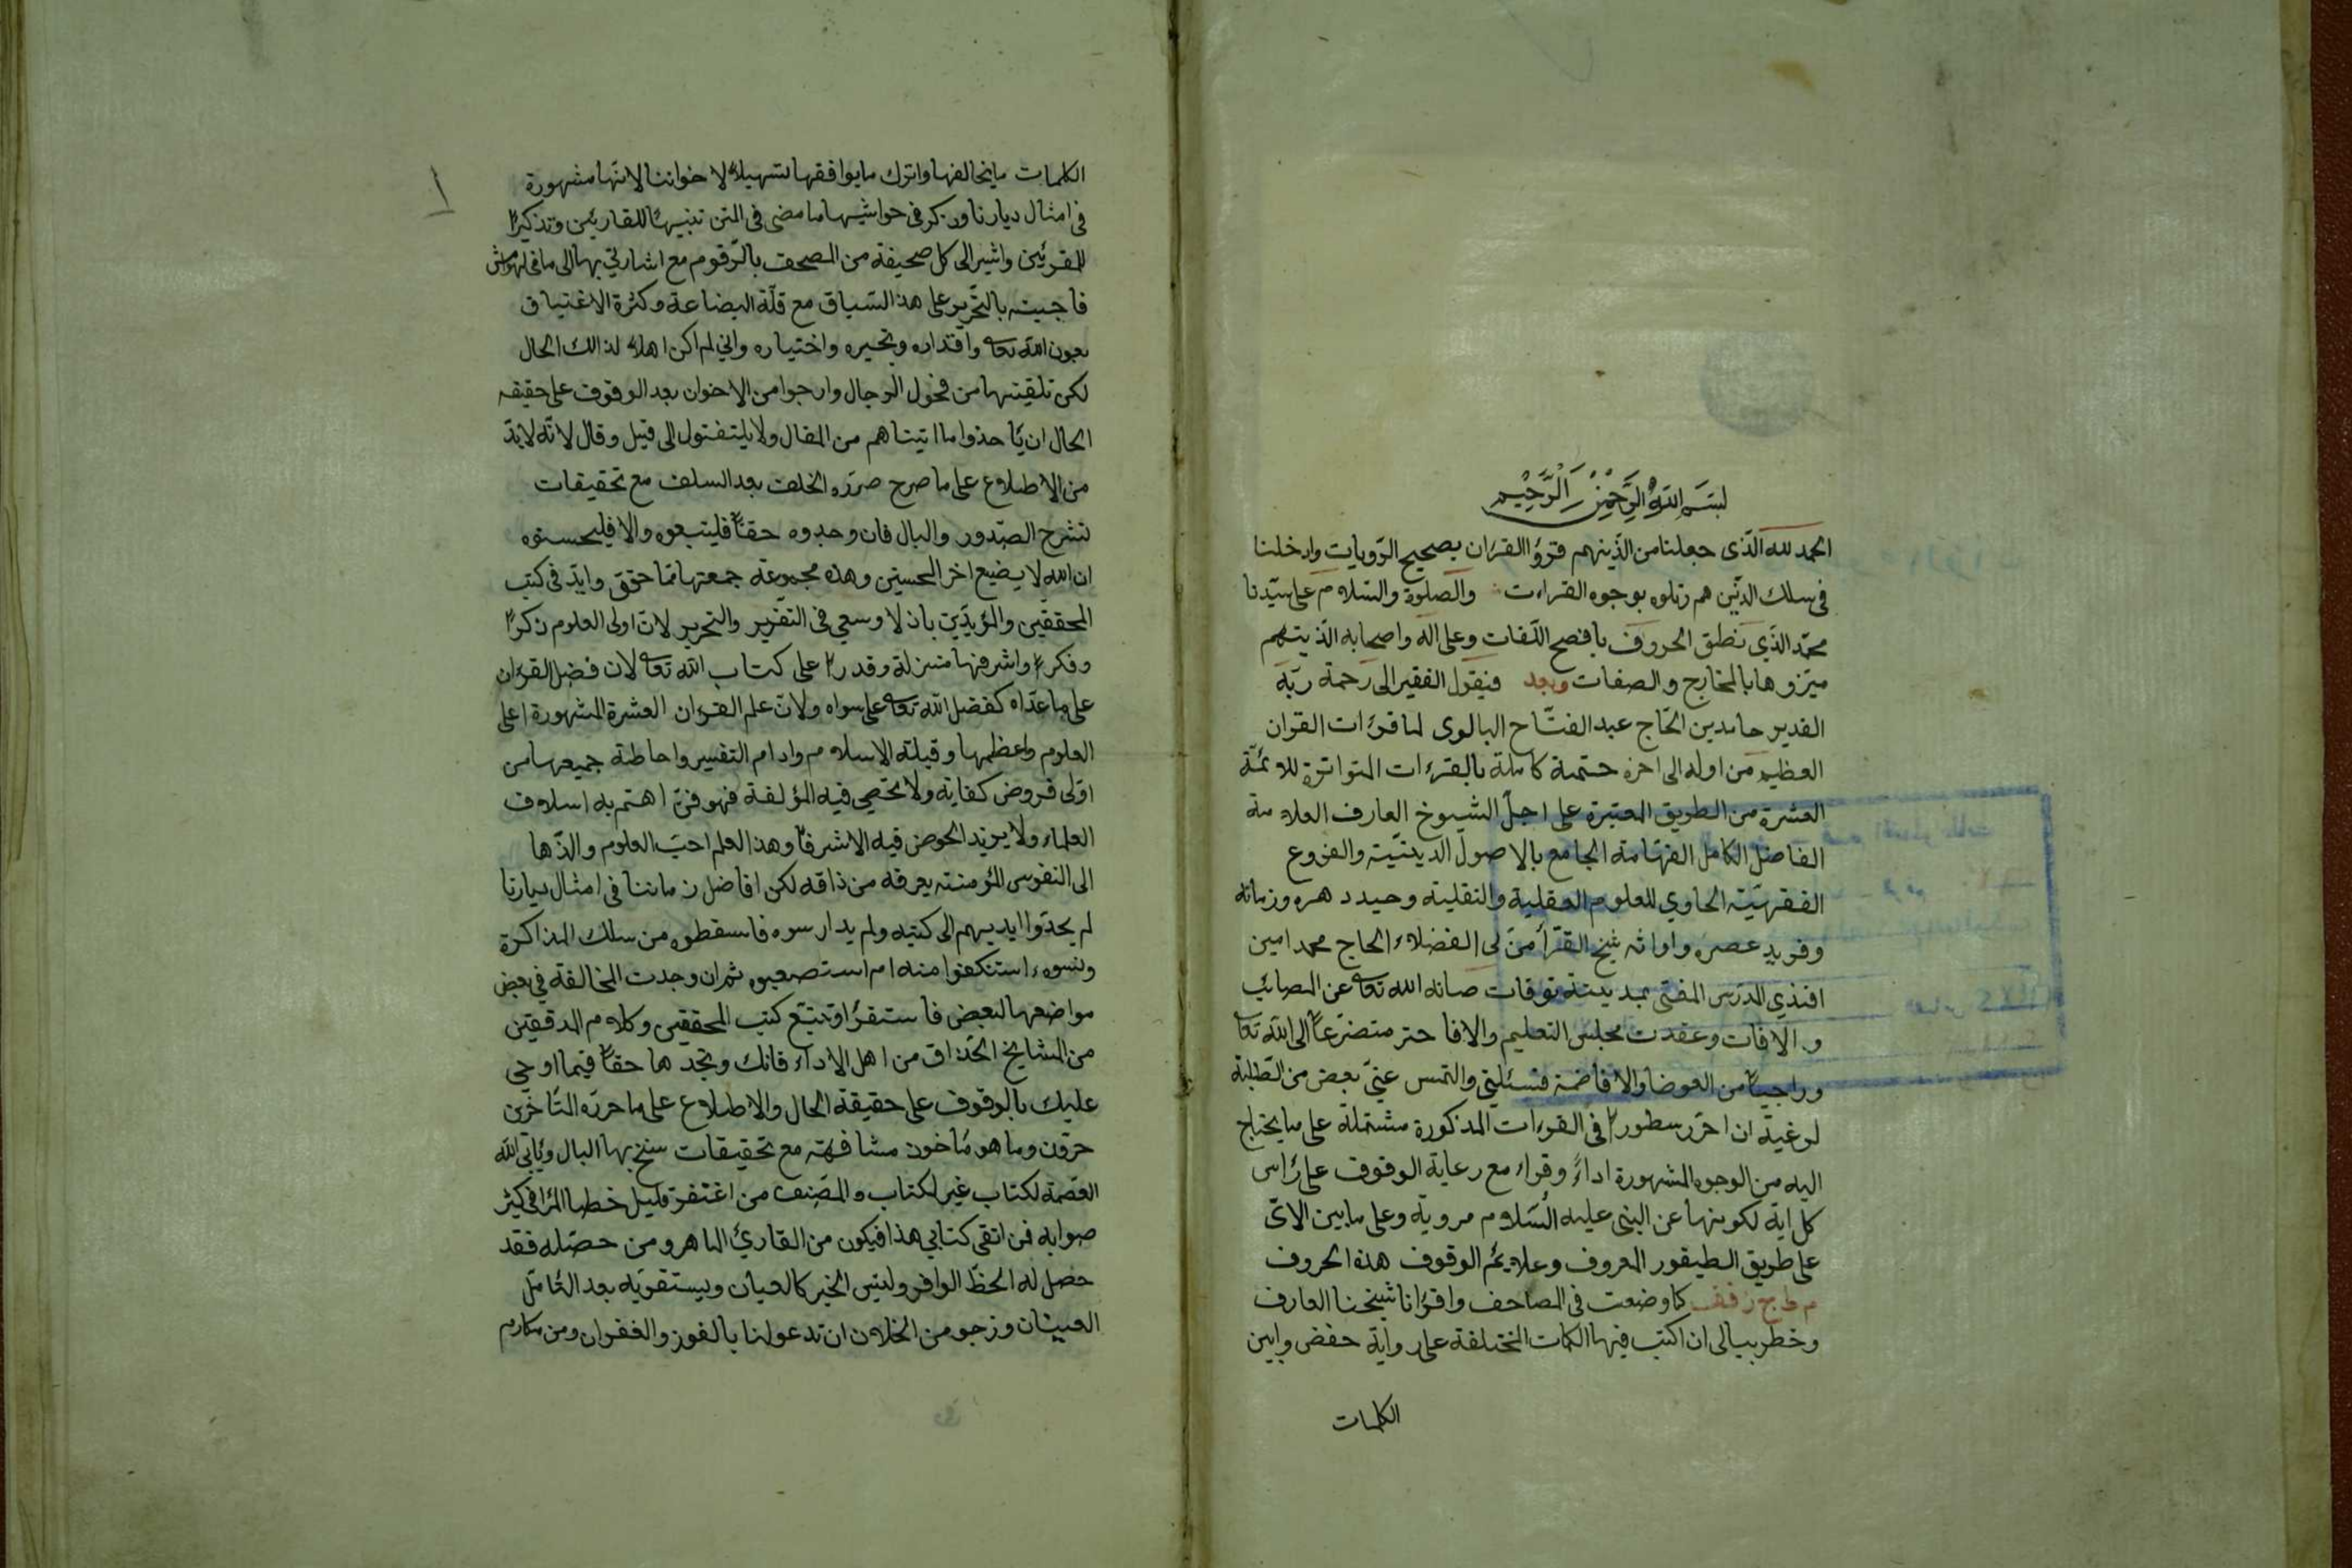 بسم الله الرحمن الرحيم
الحمد لله الذى جعلنا من الذينهم قرؤا القران بصحيح الرّويات وادخلنا
فى سلك الذين هم رتلوه بوجوه القراءت والصلوة والسلام على سيّدنا
محمّد الذي نطق الحروف بافصح اللّغات وعلى اله واصحابه الذينهم
ميّزوها بالمخارج والصفات وبعد فيقول الفقير الى رحمة ربّه
القدير حامد بن الحاج عبد الفتّاح البالوى لما قرات القران
العظيم من اوله الى اخره ختمة كاملة بالقرءات المتواترة للائمّة
العشرة من الطريق المعتبرة على اجلّ الشيوخ العارف العلامة
الفاضل الكامل الفهّامة الجامع بالاصول الدينيّة والفروع
الفقهيّة الحاوي للعلوم العقلية والنقلية وحيد دهره وزمانه
وفريد عصره واوانه شيخ القرّأ من لى الفضلاء الحاج محمد امين
افندي المدرس المفتى بمدينة توقات صانه الله تعا عن المصائب
و الافات وعقدت مجلس التعليم والافا متضرّعاً الى الله تعا
وراجيا من الفوضا والافاضة فسئلني والتمس عنيّ بعض من الطّلبة
لرغبة ان احرّر سطورا فى القرءات المذكورة مشتملة على ما يحتاج
اليه من الوجوه المشهورة اداءً وقراء مع رعاية الوقوف على رأس
كل اية لكونها عن النبى عليه السّلام مروية وعلى ما بين الاىّ
على طريق الطيفور المعروف وعلايم الوقوف هذه الحروف
م ط ج ز قف كما وضعت فى المصاحف واقرانا شيخنا العارف
وخطر ببالى ان اكتب فيها الكلمات المختلفة على رواية حفص وابين
الكلمات
الكلمات ما يخالفها واترك ما يوافقها تسهيلاً لاخواننا لانّها مشهورة
فى امثال ديارنا وذكر فى حواشيها ما مضى فى المتن تنبيها للقارئين وتذكيرا
للمقرئين واشير الى كل صحيفة من المصحف بالرّقوم مع اشارتي بها الى ما فى الهوامش
فاجبته بالتحرير على هذا السّياق مع قلّة البضاعة وكثرة الاغتياق
بعون الله تعا واقتداره وتخيره واختياره واني لم اكن اهلا لذالك الحال
لكن تلقيتها من فحول الرجال وارجوا من الاخوان بعد الوقوف على حقيقه
الحال ان يأخذوا ما اتيناهم من المقال ولا يلتفتوا الى قيل وقال لانّه لا بدّ
من الاطلاع على ما صرح الخلف بعد السلف مع تحقيقات
تشرح الصّدور والبال فان وجدوه حقّاً فليتبعوه والا فليحسنوه
ان الله لا يضيع اجر المحسنين وهذه مجموعة جمعتها ممّا حقق وايّد فى كتب
المحققين والمؤيدين باذلا وسعي فى التقرير والتحرير لانّ اولى العلوم ذكرا
وفكرا واشرفها منزلة وقدرا على كتاب الله تعا لان فضل القرءان
على ما عداه كفضل الله تعا على سواه ولانّ علم القرءان العشرة المشهورة اعلى
العلوم واعظمها وقبلة الاسلام وادام التفسير واحاطة جميعها من
اولى فروض كفاية ولا تحصى فيه المؤلفة فهو فنّ اهتم به اسلاف
العلماء ولا يريد الخوض فيه الا شرفا وهذا العلم احبّ العلوم والذّها
الى النفوس المؤمنة يعرفه من ذاقه لكن افاضل زماننا فى امثال ديارنا
لم يمدّوا ايديهم الى كتبه ولم يدارسوه فاسقطوه من سلك المذاكرة
ونسوه استنكفوا منه ام استصعبوه ثم ان وجدت المخالفة في بعض
مواضعها لبعض فاستقرأ وتتبّع كتب المحققين وكلام المدققين
من المشايخ الحذّاق من اهل الاداء فانك وتجدها حقّا فيما اوحي
عليك بالوقوف على حقيقة الحال والاطلاع على ما حرره المتأخرين
وما هو مأخوذ مشافهة مع تحقيقات سنخ بها البال ويأبى الله
العصمة لكتاب غير الكتاب والمصنف من اغتفر قليل خطا المرا فى كثير
صوابه فمن اتقى كتابي هذا فيكون من القاريّ الماهر ومن حصّله فقد
حصل له الحظّ الوافر وليس الخبر كالعيان ويستقويه بعد التأمّل
العينان ونرجو من الخلان ان تدعو لنا بالفوز والغفران ومن مكارم